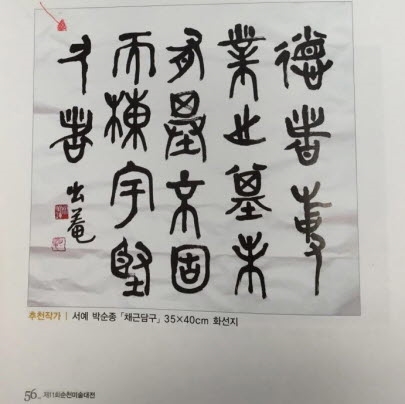 德者事
業之基未
有基不固
而棟宇堅
久者
추천작가 | 서예 박순종 「채근담구」 35×40cm 화선지
56_ 제11회순천미술대전